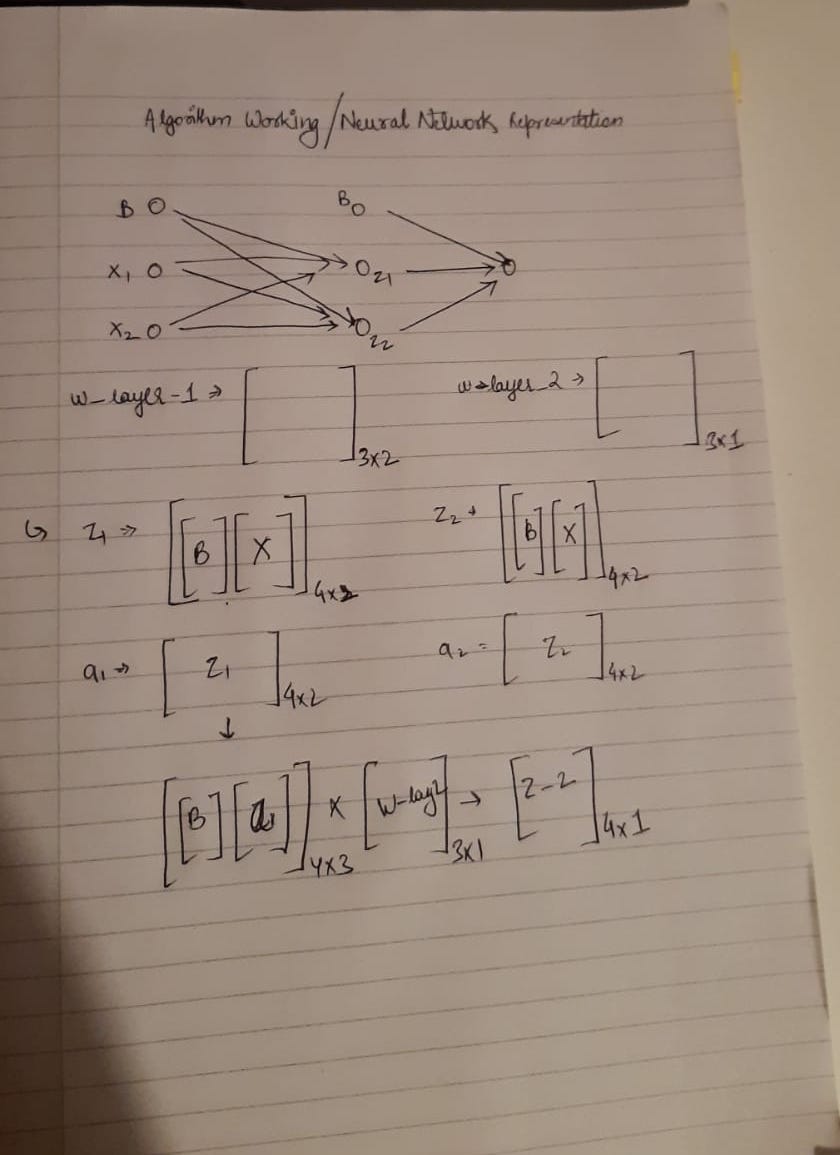 Algorithm Working/Neural Network Representation
B O B O
X1 O O Z1 O
X2 O O Z2
W-layer-1 ⇒ [ ]3x2 W-layer-2 → [ ]3x1
↳ Z1 ⇒ [[B][X]] Z2 → [[B][X]]4x2
a1 ⇒ [Z1]4x2 a2 = [Z2]4x2
↓
[[B][a1]]4x3 x [W-lay2]3x1 → [Z-2]4x1